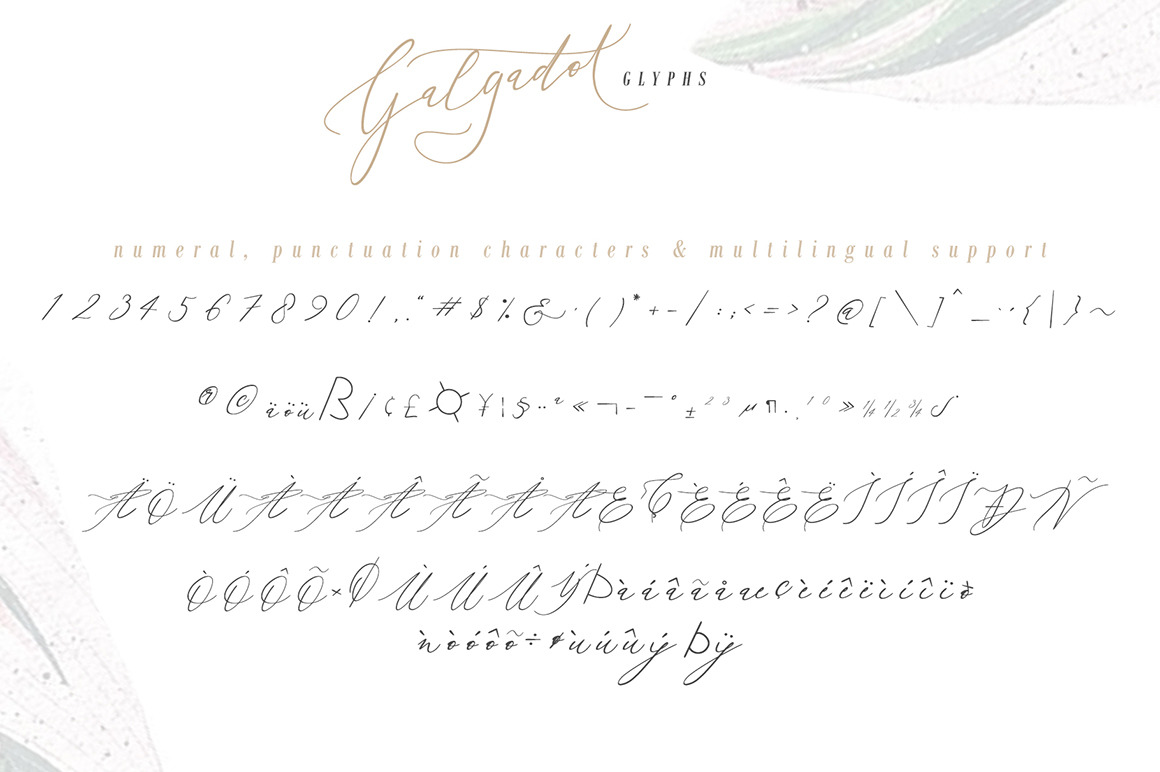 Galgadot GLYPHS
numeral, punctuation characters & multilingual support
1 2 3 4 5 6 7 8 9 0 ! , . “ # $ % & ' ( ) * + - / : ; < = > ? @ [ \ ] ^ _ { | } ~
® © ä ö ü ß / ¢ £ ¤ ¥ ¦ § ¨ ª « ¬ - ¯ ° ± ² ³ µ ¶ · ¸ ¹ º » ¼ ½ ¾
Ä Ö Ü À Á Â Ã Å Æ Ç È É Ê Ë Ì Í Î Ï Ð Ñ
Ò Ó Ô Õ × Ø Ù Ú Û Ý Þ à á â ã å æ ç è é ê ë ì í î ï ð
ñ ò ó ô õ ÷ ø ù ú û ý þ ÿ